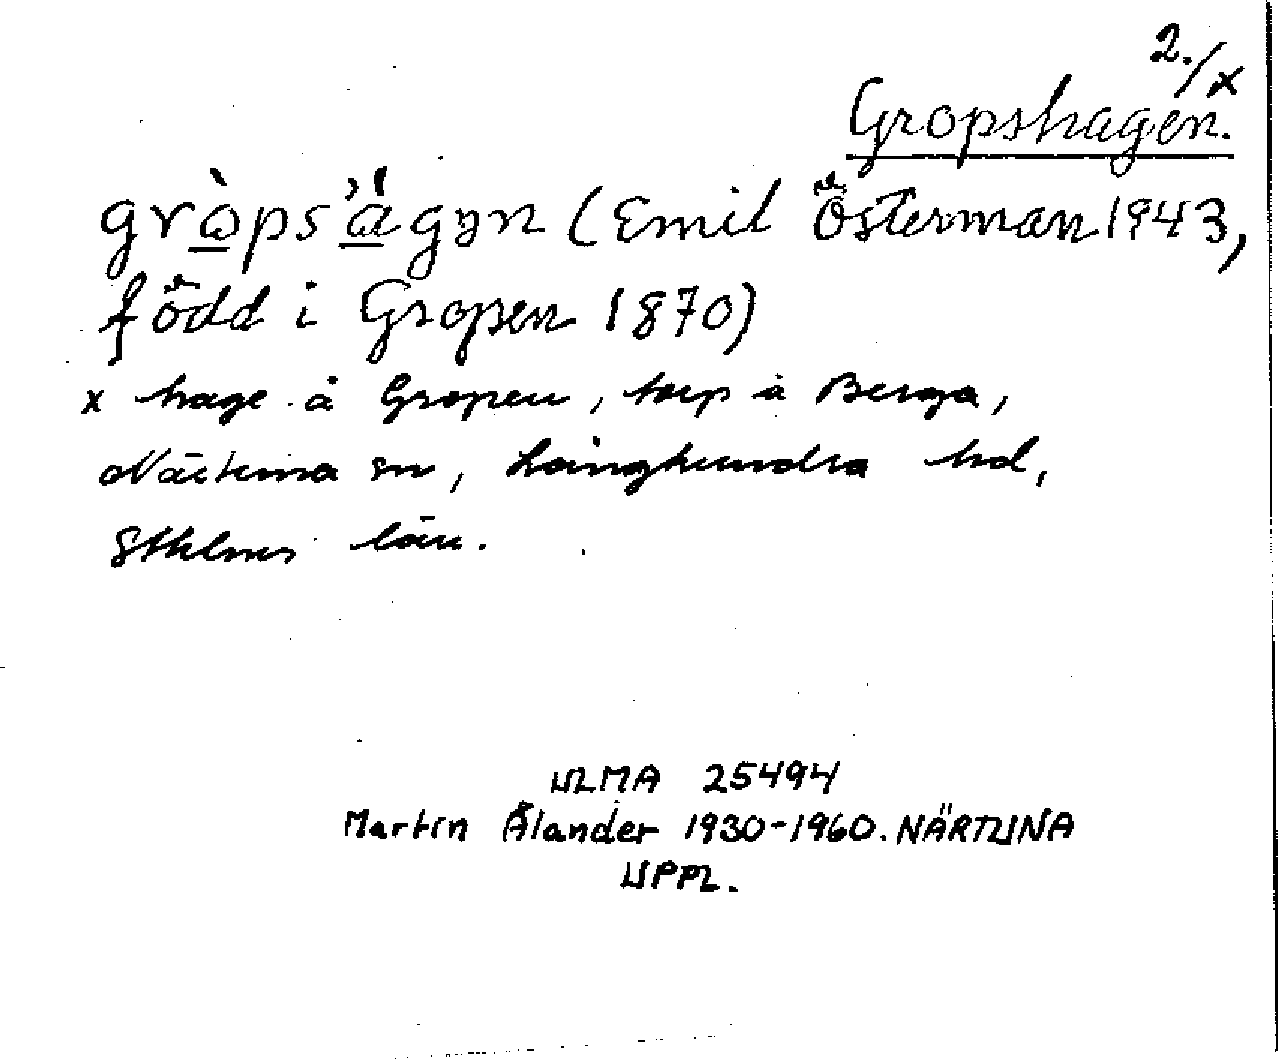 2./x
Gropshagen.
gròps'ágən (Emil Österman 1943,
född i Gropen 1870)
x hage å Gropen, torp å Berga,
Närtuna sn, Långhundra hd,
Sthlms län.
ULMA 25494
Martin Ålander 1930-1960. NÄRTUNA
UPPL.